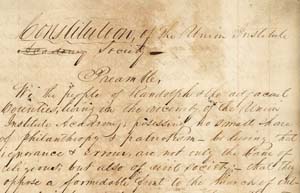 Constitution, of the Union Institute
Academy Society
Preamble,
We the people of Randolph and adjacent
Counties, living in the vicinity of the Union
Institute Academy; possessing no small share
of philanthropy & patriotism; believing that
ignorance & error, are not only the bane of
religious, but also of civil society; that they
oppose a formidable front to the march of